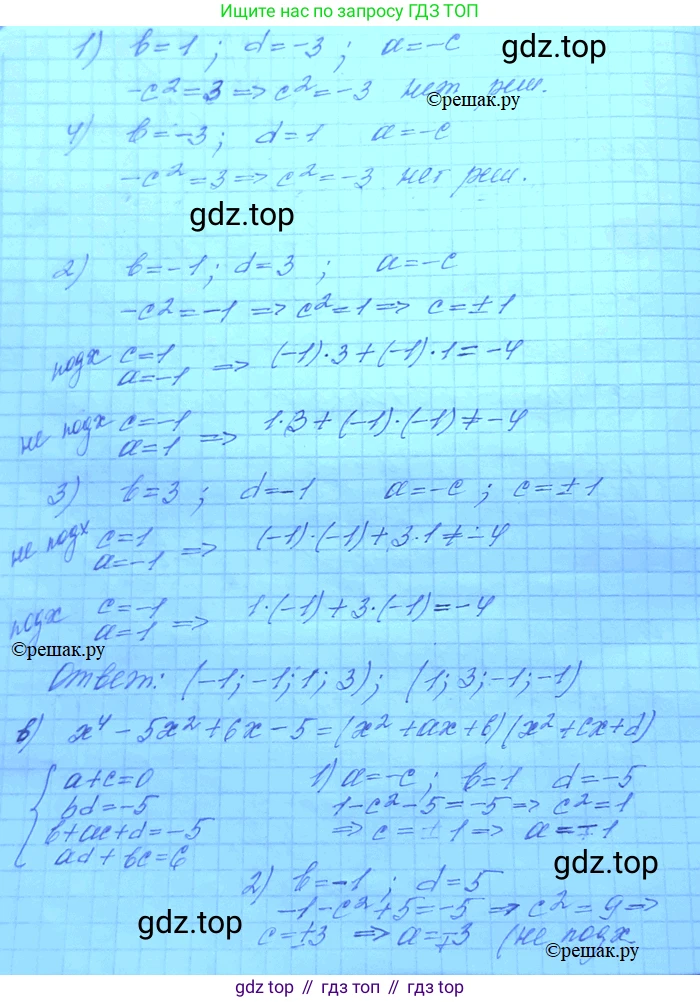 Ищите нас по запросу ГДЗ ТОП
1) b=1; d=-3; a=-c
-c²=3 => c²=-3 нет реш.
©решак.ру
4) b=-3; d=1 a=-c
-c²=3 => c²=-3 нет реш.
gdz.top
gdz.top
2) b=-1; d=3; a=-c
-c²=-1 => c²=1 => c=±1
подх c=1
a=-1 => (-1)·3+(-1)·1=-4
не подх c=-1
a=1 => 1·3+(-1)·(-1)≠-4
3) b=3; d=-1 a=-c; c=±1
не подх c=1
a=-1 => (-1)·(-1)+3·1≠-4
подх c=-1
a=1 => 1·(-1)+3·(-1)=-4
©решак.ру
Ответ: (-1;-1;1;3); (1;3;-1;-1)
в) x⁴-5x²+6x-5=(x²+ax+b)(x²+cx+d)
{ a+c=0
bd=-5
b+ac+d=-5
ad+bc=6
1) a=-c; b=1 d=-5
1-c²-5=-5 => c²=1
=> c=±1 => a=∓1
gdz.top
2) b=-1; d=5
-1-c²+5=-5 => c²=9 =>
c=±3 => a=∓3 (не подх
gdz.top
©решак.ру
gdz.top // gdz.top // gdz.top